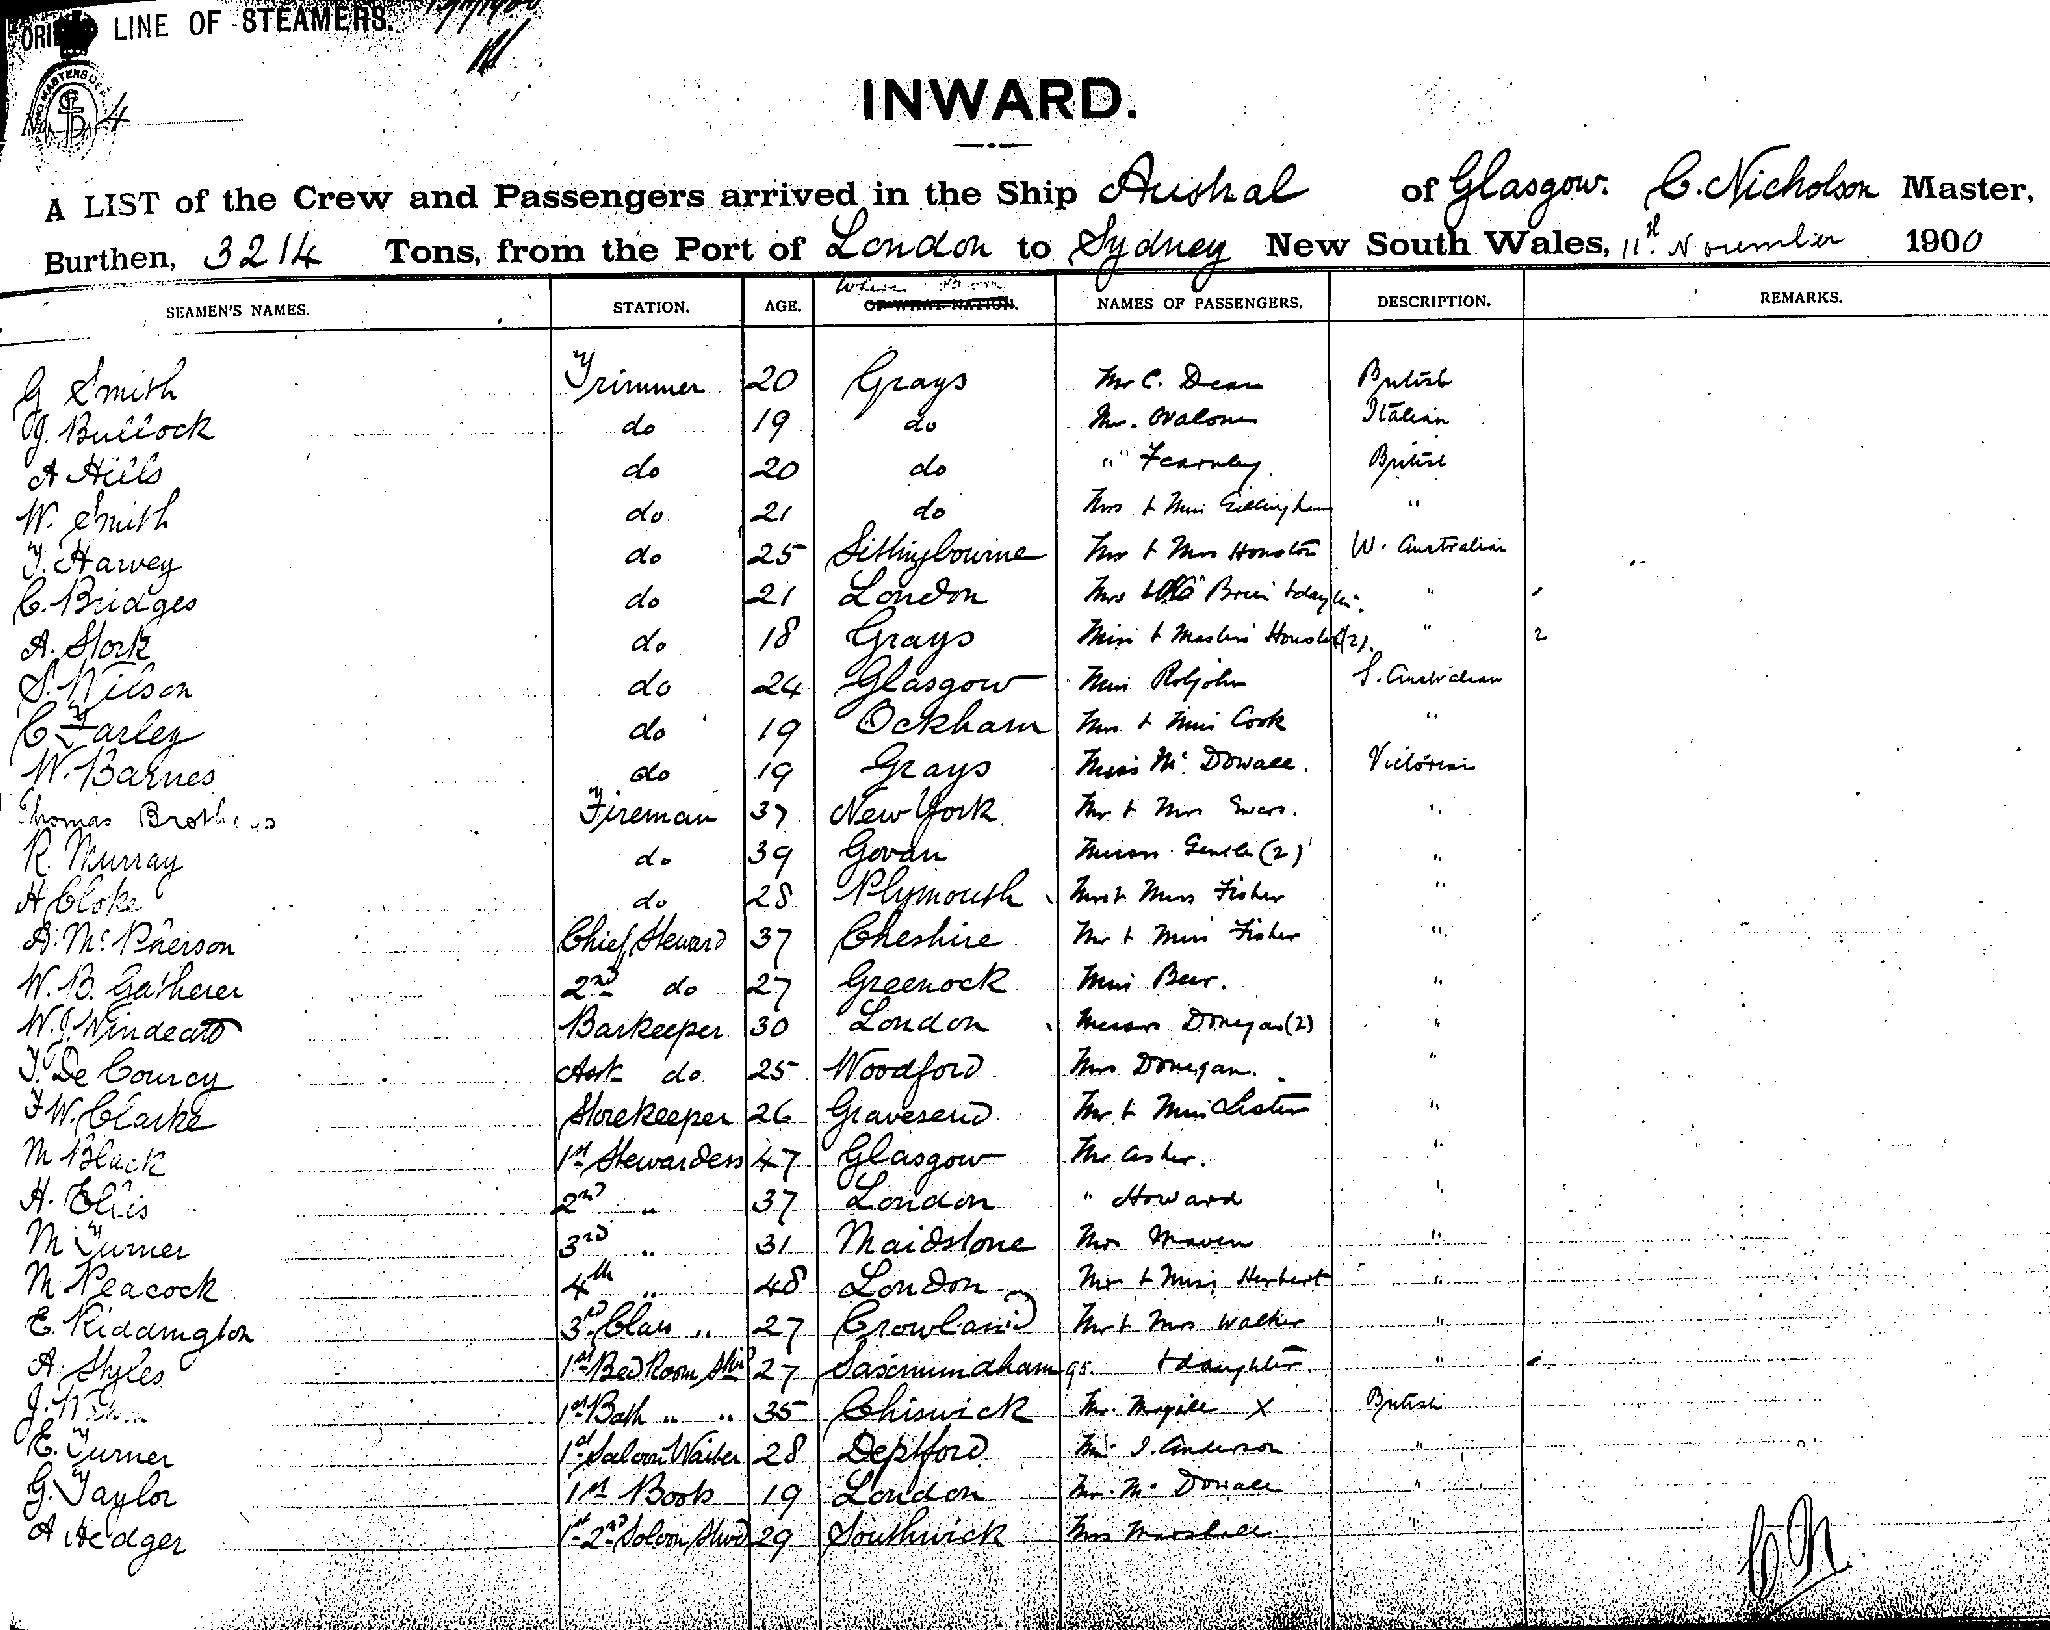 LINE OF STEAMERS.
4
INWARD.
A LIST of the Crew and Passengers arrived in the Ship Austral of Glasgow. C. Nicholson Master,
Burthen, 3214 Tons, from the Port of London to Sydney New South Wales, 11th November 1900
SEAMEN'S NAMES. STATION. AGE. Where Born OF WHAT NATION. NAMES OF PASSENGERS. DESCRIPTION. REMARKS.
G Smith Trimmer 20 Grays Mr C. Dean British
J. Bullock do 19 do Mr. Italian
A Hills do 20 do " Fearnley British
W. Smith do 21 do Mrs & Miss Gillingham "
T. Harvey do 25 Sittingbourne Mr & Mrs Houston W. Australian
C. Bridges do 21 London Mrs Brien & daughter "
A. Stork do 18 Grays Miss & Masters Houston (2). " 2
S. Wilson do 24 Glasgow Miss Robjohn S. Australian
C Farley do 19 Ockham Mrs & Miss Cook "
W. Barnes do 19 Grays Miss Mc Dowall. Victorian
Thomas Brothers Fireman 37 New York Mr & Mrs Ewers. "
R. Murray do 39 Govan Messrs Gentle (2) "
A Cloke do 28 Plymouth Mr & Mrs Fisher "
A. Mc Pherson Chief Steward 37 Cheshire Mr & Miss Fisher "
W. B. Gatherer 2nd do 27 Greenock Miss Beer. "
W. J. Windeatt Barkeeper 30 London Messrs Donegan (2) "
T. De Courcy Asst do 25 Woodford Mrs Donegan. "
F W. Clarke Storekeeper 26 Gravesend Mr & Miss Lister "
M Black 1st Stewardess 47 Glasgow Mr Asher. "
H. Ellis 2nd " 37 London " Howard "
M Turner 3rd " 31 Maidstone Mrs Maven "
M Peacock 4th " 48 London Mr & Miss Herbert "
E. Kiddington 3rd Class " 27 Crowland Mr & Mrs Walker "
A. Styles 1st Bed Room Stwd 27 Saxmundham 95. & daughter "
J. 1st Bath " " 35 Chiswick Mr. Magill X British
E. Turner 1st Saloon Waiter 28 Deptford J. Anderson "
G. Taylor 1st Boots 19 London Mr. Mc Dowall "
A Hedger 1st 2nd Saloon Stwd 29 Southwick Mrs Marshall "
CN